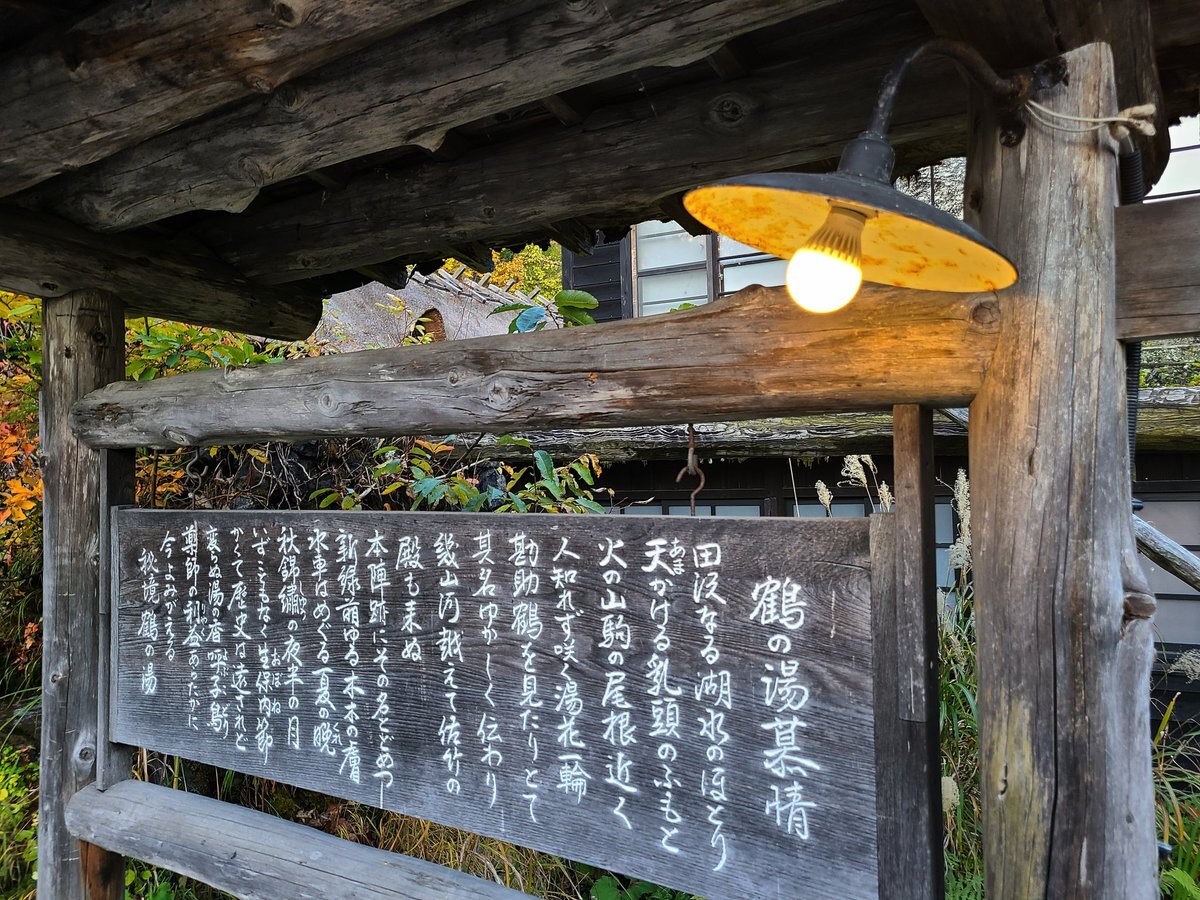 鶴の湯慕情
田沢なる湖水のほとり
天かける乳頭のふもと
あま
火の山駒の尾根近く
人知れず咲く湯花一輪
勘助鶴を見たりとて
其名ゆかしく伝わり
幾山河越えて佐竹の
殿も来ぬ
本陣跡にその名とどめつ
新緑萌ゆる木木の膚
水車はめぐる夏の晩
秋錦繍の夜半の月
いずこもなく生保内節
おぼない
かくて歴史は遠されど
変らぬ湯の香呼子鳥
導師の利益あつたかに
今よみがえる
秘境鶴の湯